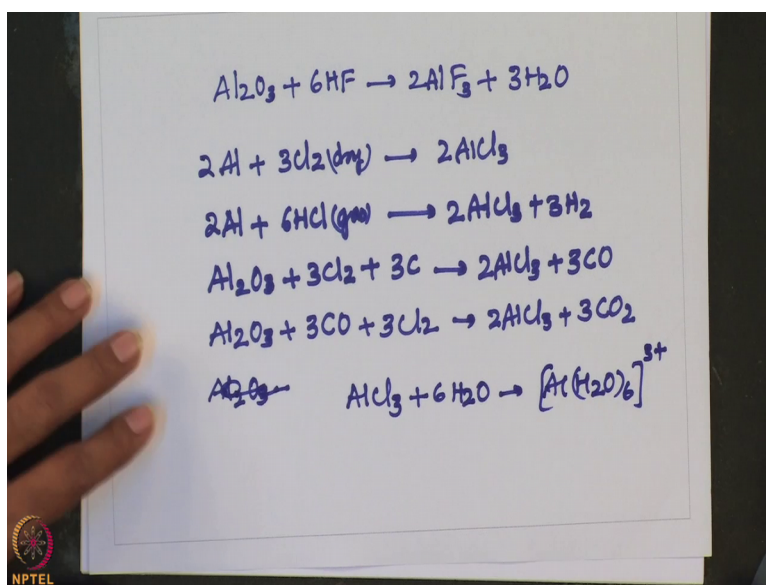 Al2O3 + 6HF → 2AlF3 + 3H2O
2Al + 3Cl2(dry) → 2AlCl3
2Al + 6HCl(gas) → 2AlCl3 + 3H2
Al2O3 + 3Cl2 + 3C → 2AlCl3 + 3CO
Al2O3 + 3CO + 3Cl2 → 2AlCl3 + 3CO2
Al2O3 AlCl3 + 6H2O → [Al(H2O)6]3+
NPTEL